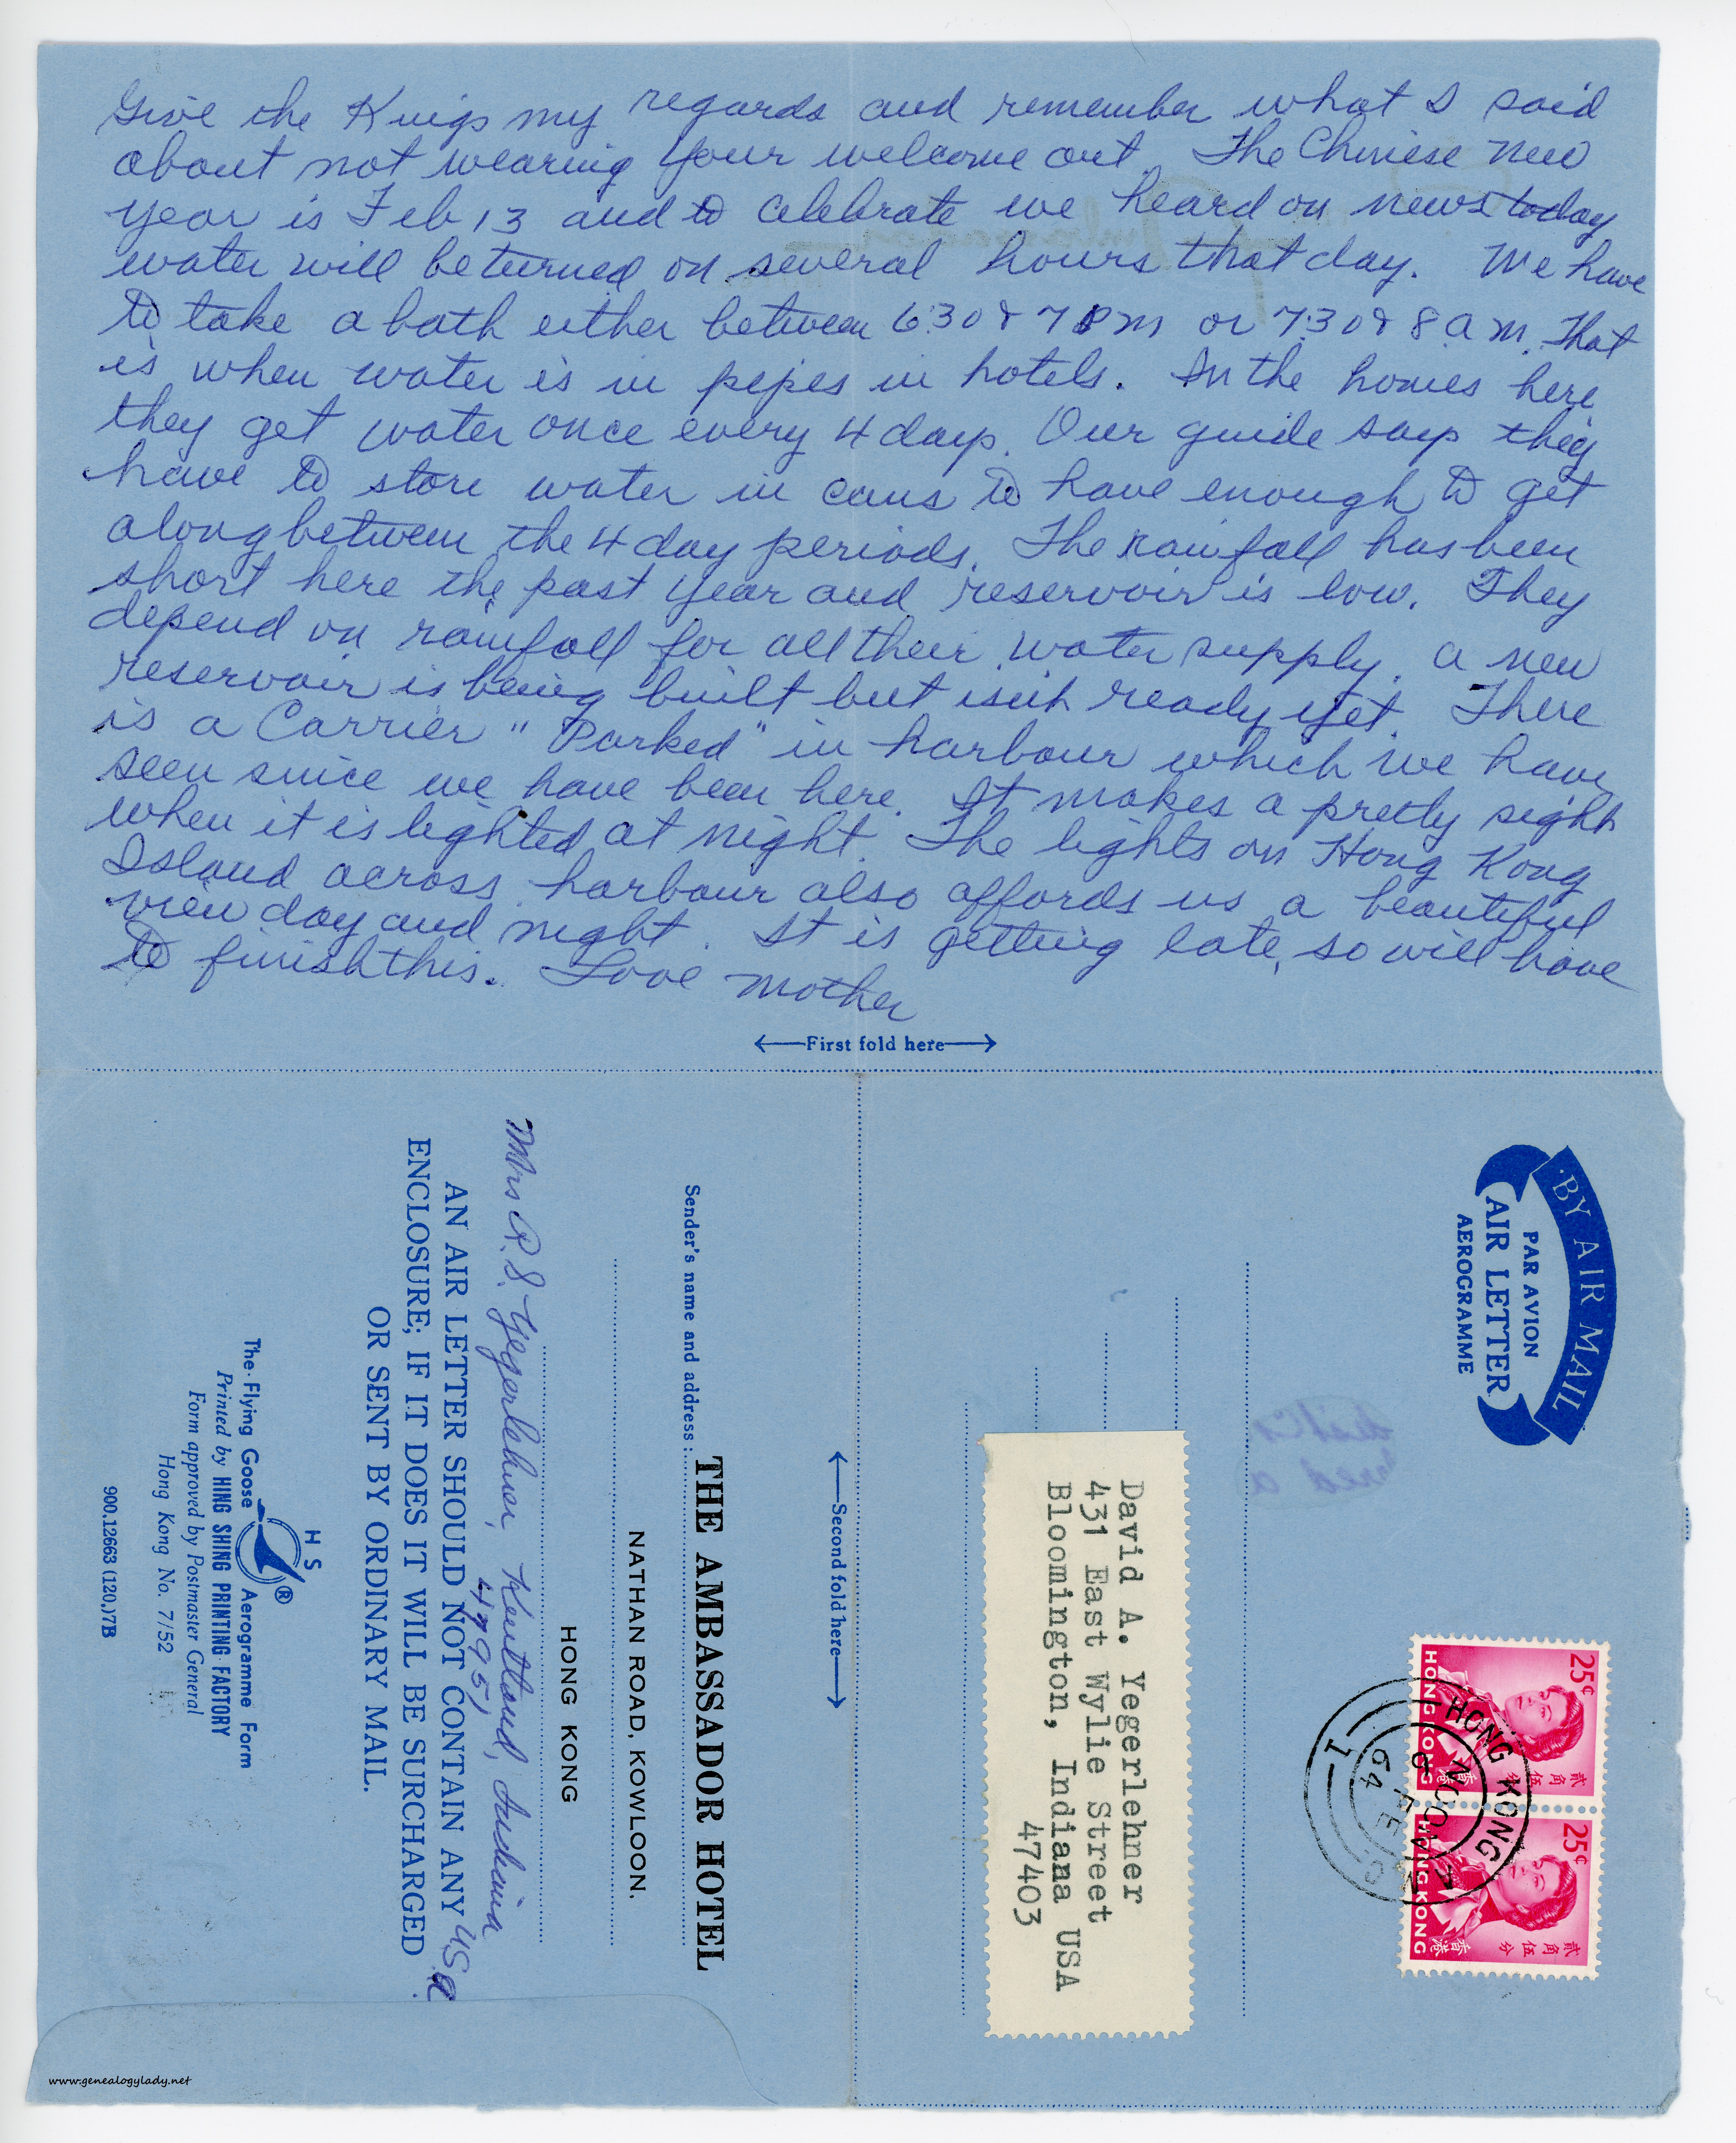 Give the Kings my regards and remember what I said
about not wearing your welcome out. The Chinese New
year is Feb 13 and to celebrate we heard on news today
water will be turned on several hours that day. We have
to take a bath either between 6:30 & 7 PM or 7:30 & 8 a.m. That
is when water is in pipes in hotels. In the homes here
they get water once every 4 days. Our guide says they
have to store water in cans to have enough to get
along between the 4 day periods. The rainfall has been
short here the past year and reservoir is low. They
depend on rainfall for all their water supply. A new
reservoir is being built but isn't ready yet. There
is a Carrier "Parked" in harbour which we have
seen since we have been here. It makes a pretty sight
when it is lighted at night. The lights on Hong Kong
Island across harbour also affords us a beautiful
view day and night. It is getting late, so will have
to finish this. Love Mother
←First fold here→
BY AIR MAIL
PAR AVION
AIR LETTER
AEROGRAMME
25¢
HONG KONG
香港
貳角伍分
25¢
HONG KONG
香港
貳角伍分
HONG KONG
NOON
FE
64
1
David A. Yegerlehner
431 East Wylie Street
Bloomington, Indiana USA
47403
←Second fold here→
Sender's name and address:
THE AMBASSADOR HOTEL
NATHAN ROAD, KOWLOON.
HONG KONG
Mrs R. S. Yegerlehner, Kentland, Indiana
47951, USA
AN AIR LETTER SHOULD NOT CONTAIN ANY
ENCLOSURE; IF IT DOES IT WILL BE SURCHARGED
OR SENT BY ORDINARY MAIL.
H S
®
The Flying Goose Aerogramme Form
Printed by HING SHING PRINTING FACTORY
Form approved by Postmaster General
Hong Kong No. 7/52
900.12663 (120.)7B
www.genealogylady.net